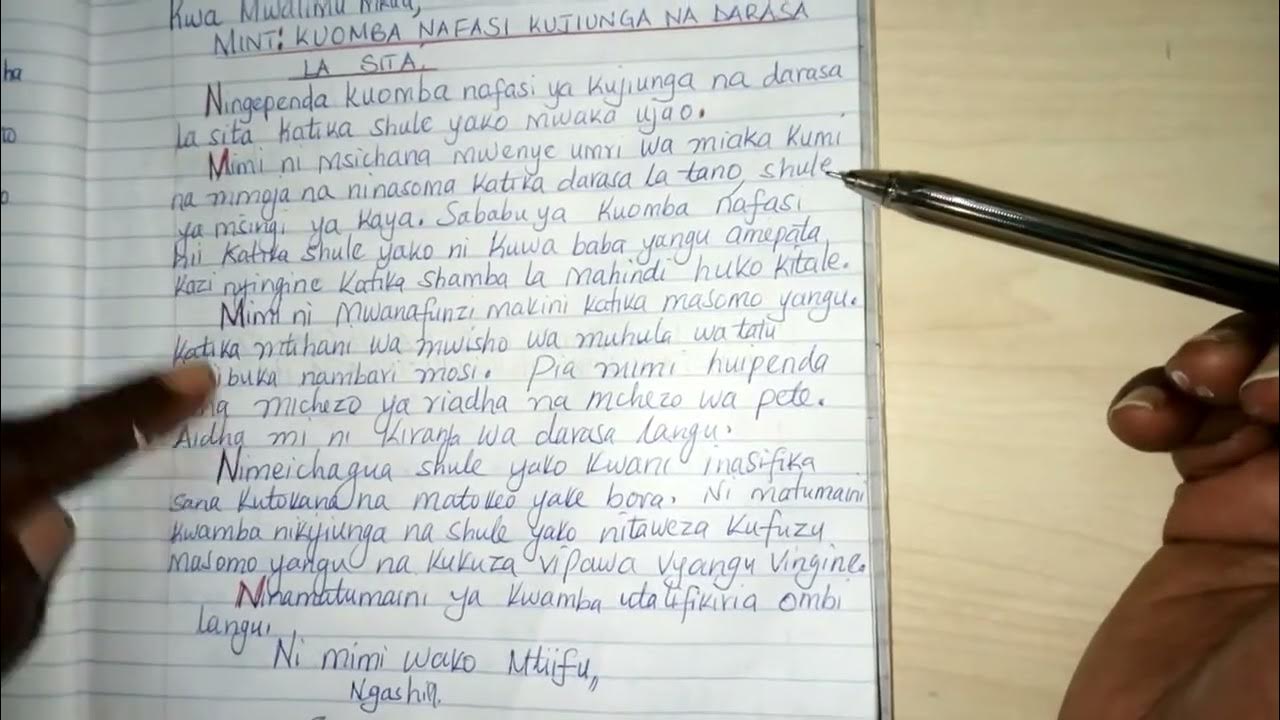 Kwa Mwalimu Mkuu,
MINT: KUOMBA NAFASI KUJIUNGA NA DARASA
LA SITA.
Ningependa kuomba nafasi ya kujiunga na darasa
la sita katika shule yako mwaka ujao.
Mimi ni msichana mwenye umri wa miaka kumi
na mmoja na ninasoma katika darasa la tano, shule
ya msingi ya kaya. Sababu ya kuomba nafasi
hii katika shule yako ni kuwa baba yangu amepata
kazi nyingine katika shamba la mahindi huko kitale.
Mimi ni mwanafunzi makini katika masomo yangu.
katika mtihani wa mwisho wa muhula wa tatu
ibuka nambari mosi. Pia mimi huipenda
michezo ya riadha na mchezo wa pete.
Aidha mi ni kiranja wa darasa langu.
Nimeichagua shule yako kwani inasifika
sana kutokana na matokeo yake bora. Ni matumaini
kwamba nikijiunga na shule yako nitaweza kufuzu
masomo yangu na kukuza vipawa vyangu vingine.
Ninamatumaini ya kwamba utalifikiria ombi
langu.
Ni mimi wako Mtiifu,,
ha